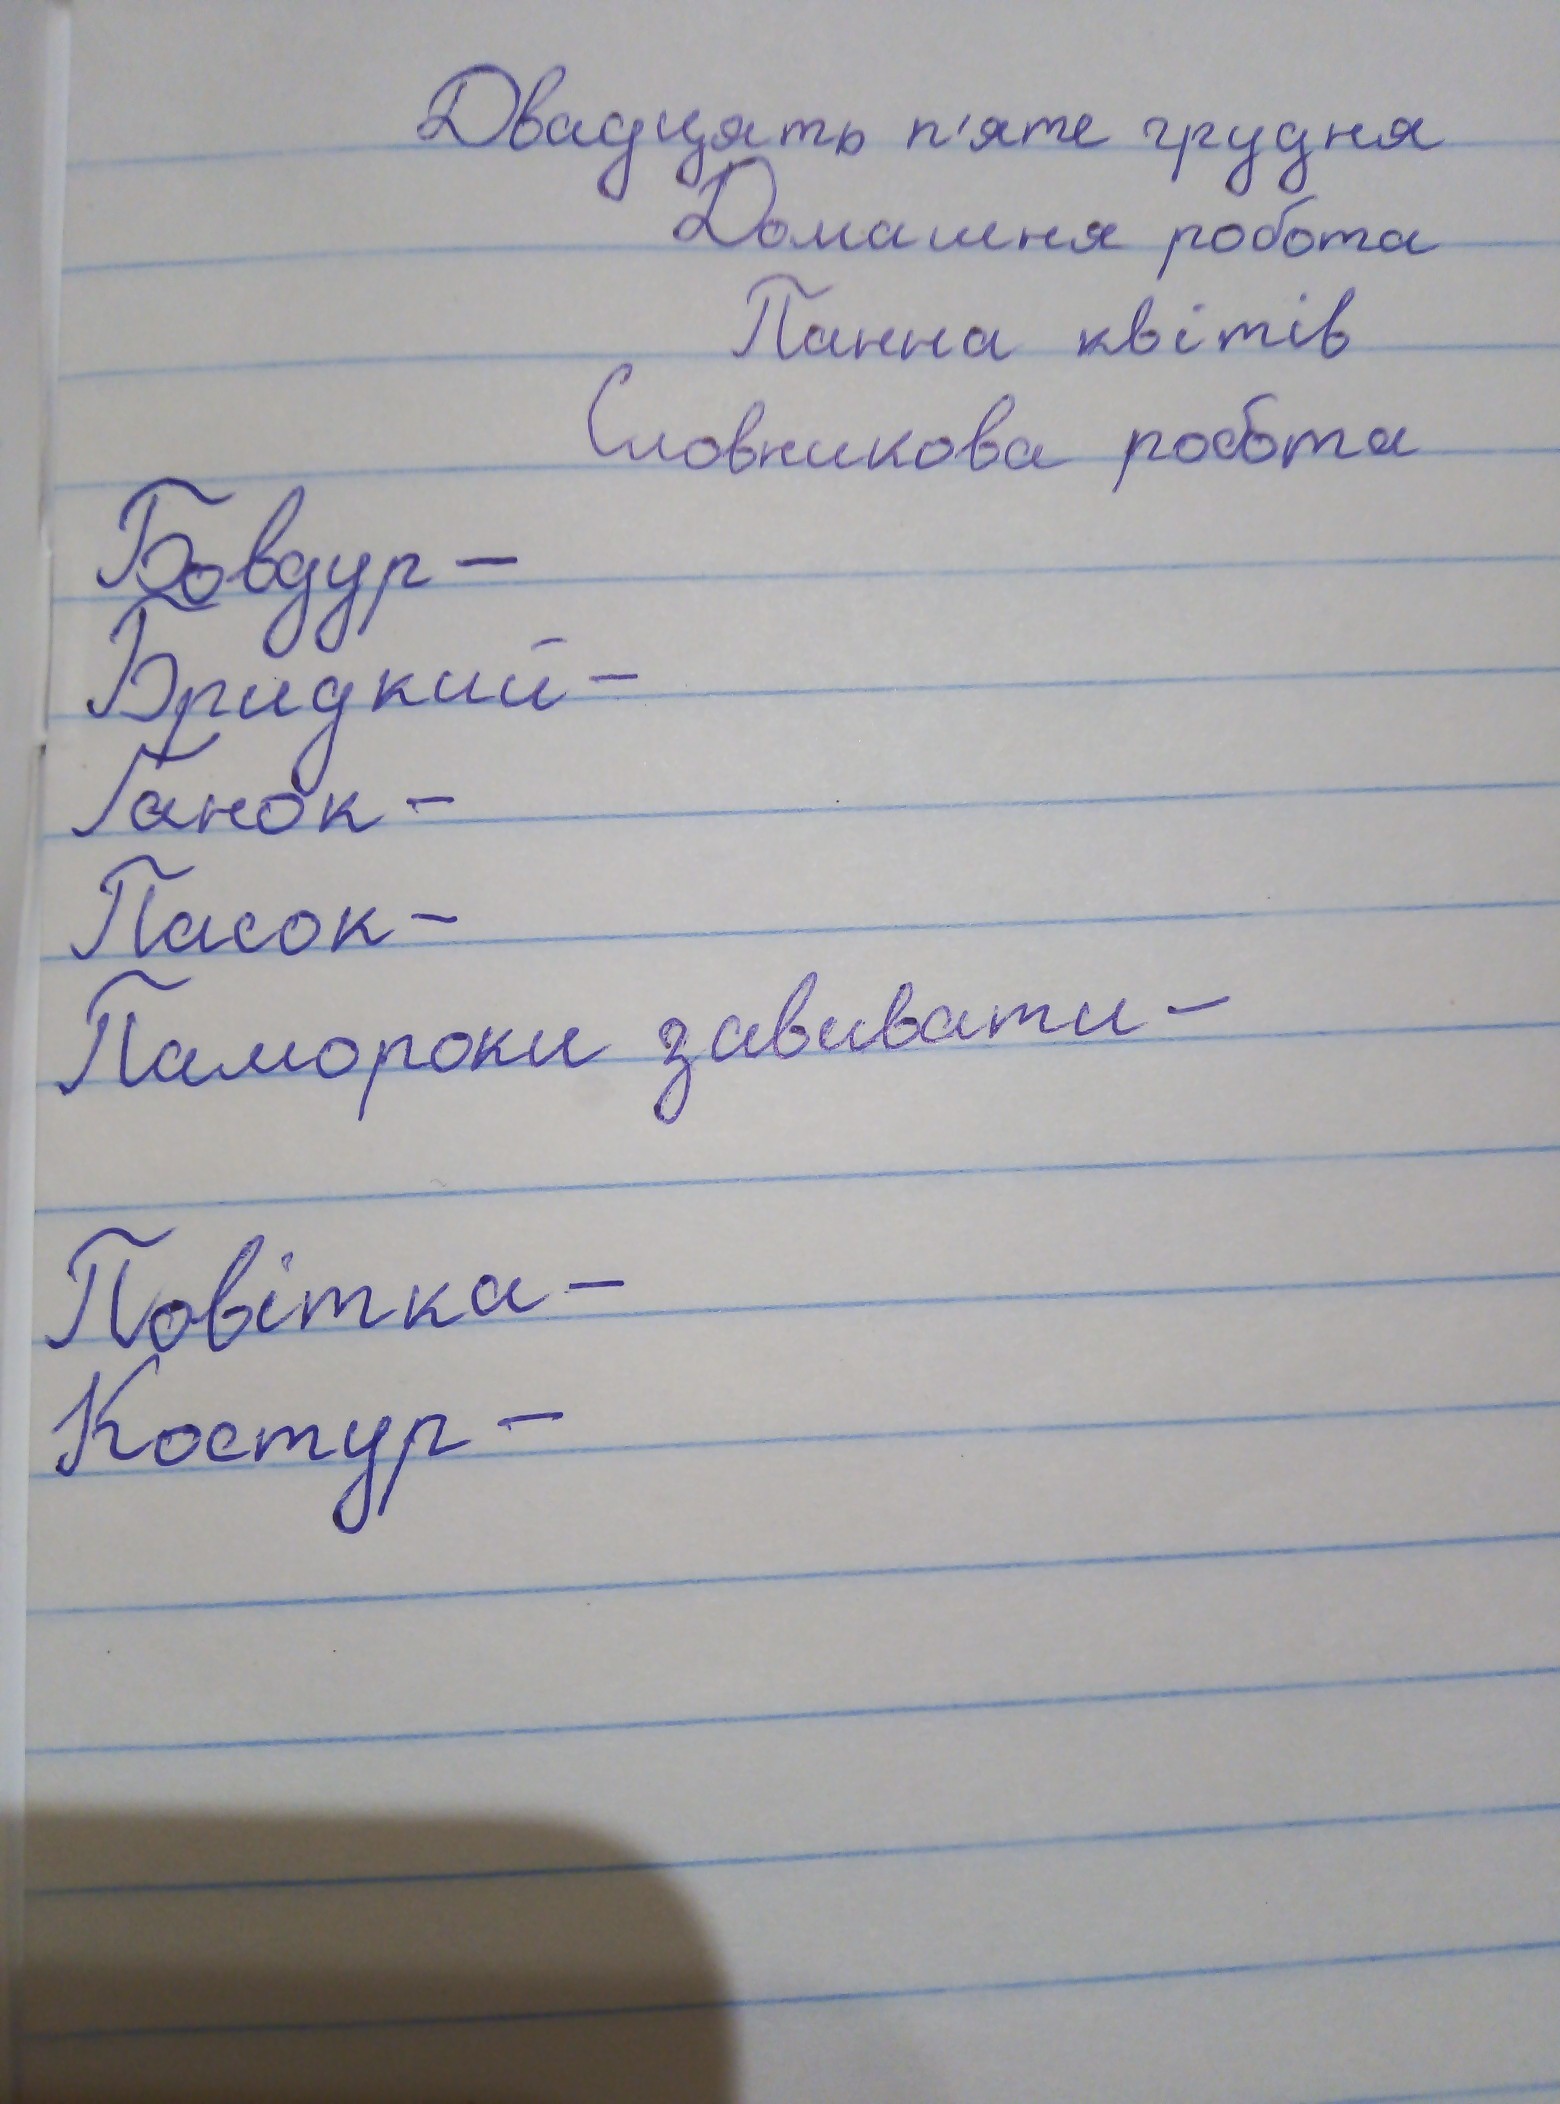 Двадцять п'яте грудня
Домашня робота
Панна квітів
Словникова робота
Бовдур –
Бридкий –
Ґанок –
Пасок –
Памороки завивати –
Повітка –
Костур –